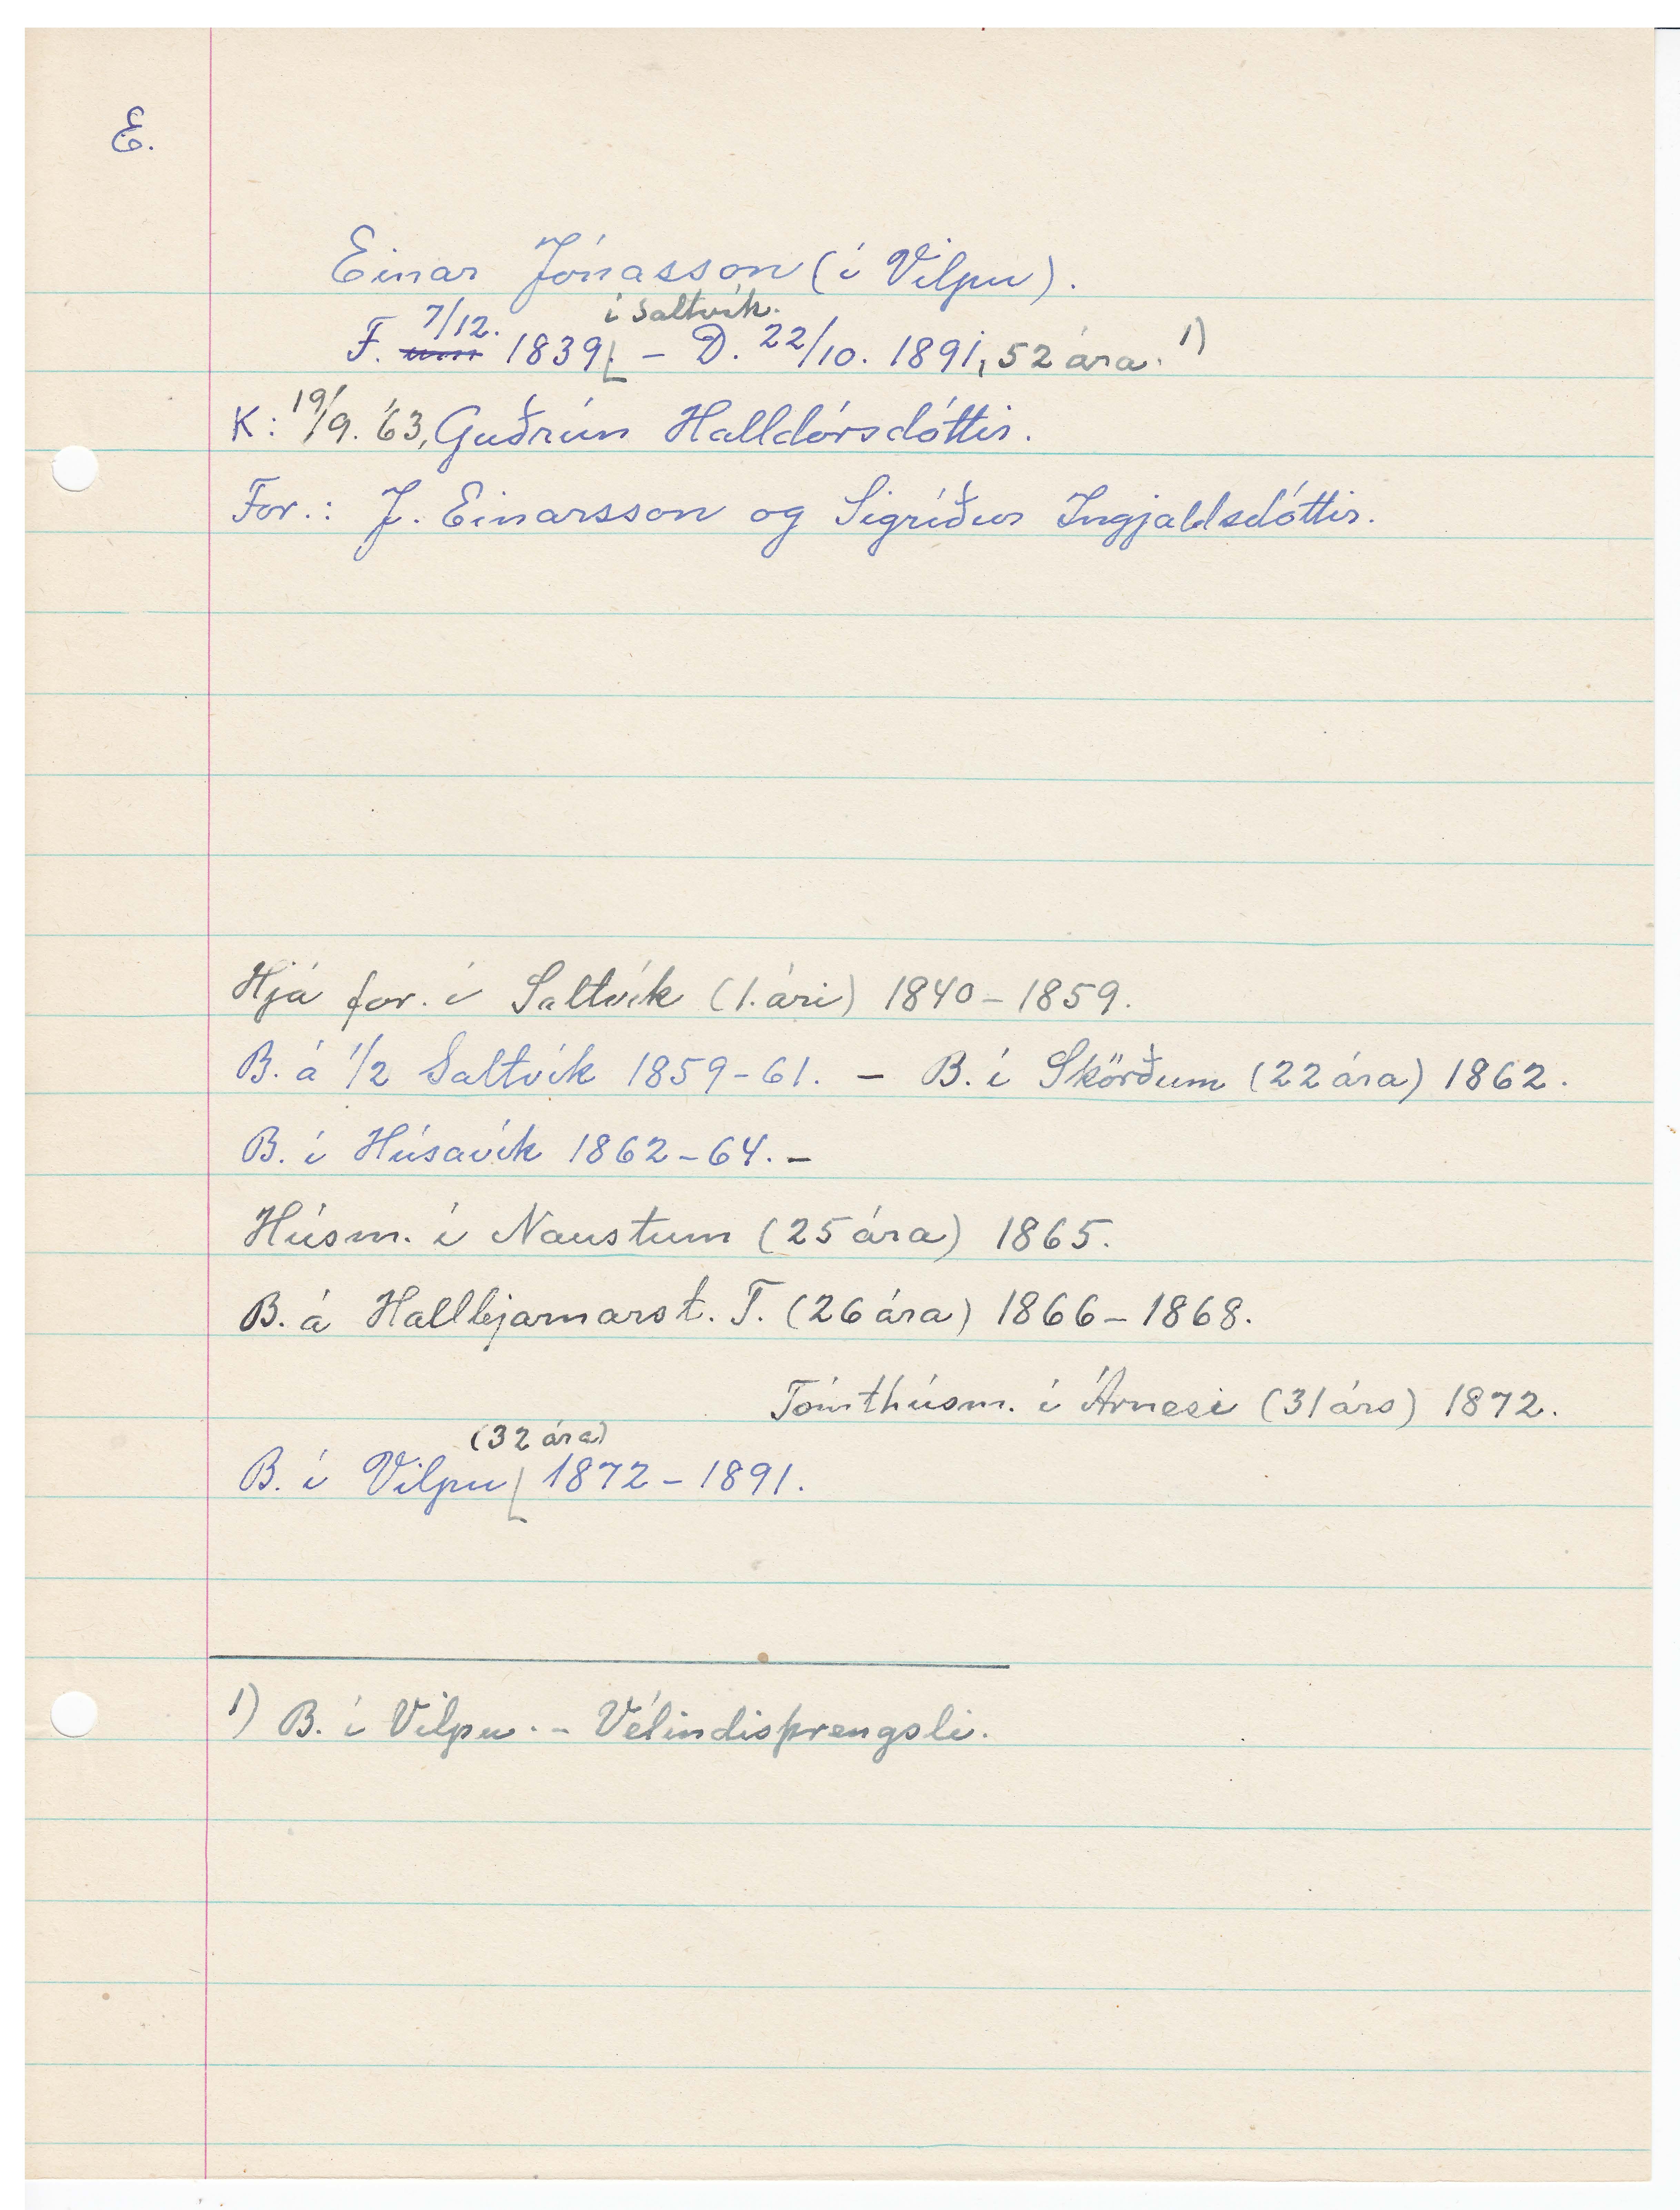 E.
Einar Jónasson (í Vilpu).
7/12. í Saltvík.
F. um 1839. – D. 22/10. 1891, 52 ára. 1)
K: 19/9. '63, Guðrún Halldórsdóttir.
For.: J. Einarsson og Sigríður Ingjaldsdóttir.
Hjá for. í Saltvík (1. ári) 1840–1859.
B. á 1/2 Saltvík 1859–61. – B. í Skörðum (22 ára) 1862.
B. í Húsavík 1862–64. –
Húsm. í Naustum (25 ára) 1865.
B. á Hallbjarnarst. T. (26 ára) 1866–1868.
Tómthúsm. í Árnesi (31 árs) 1872.
(32 ára)
B. í Vilpu 1872–1891.
1) B. í Vilpu. – Vélindisþrengsli.